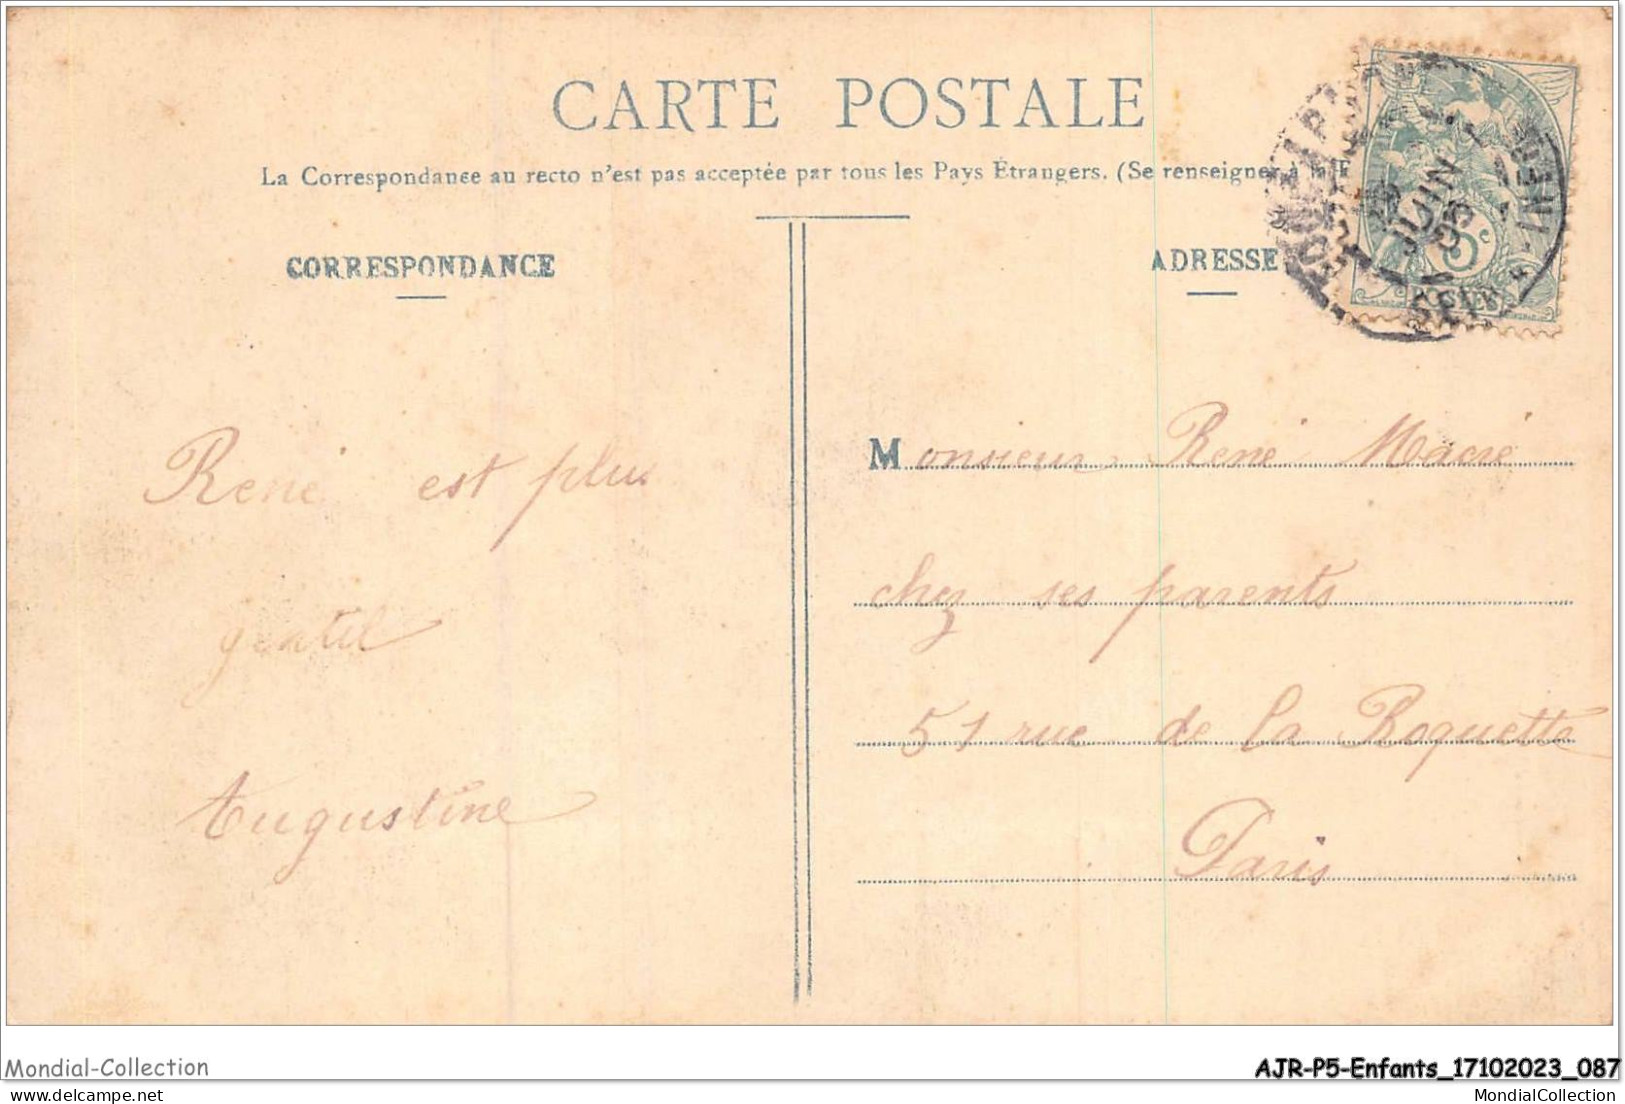 CARTE POSTALE
La Correspondance au recto n'est pas acceptée par tous les Pays Étrangers. (Se renseigner à
CORRESPONDANCE
ADRESSE
JUIN
5c
René est plus
gentil
Augustine
Monsieur René Macré
chez ses parents
51 rue de la Roquette
Paris
Mondial-Collection
AJR-P5-Enfants_17102023_087
delcampe.net
MondialCollection